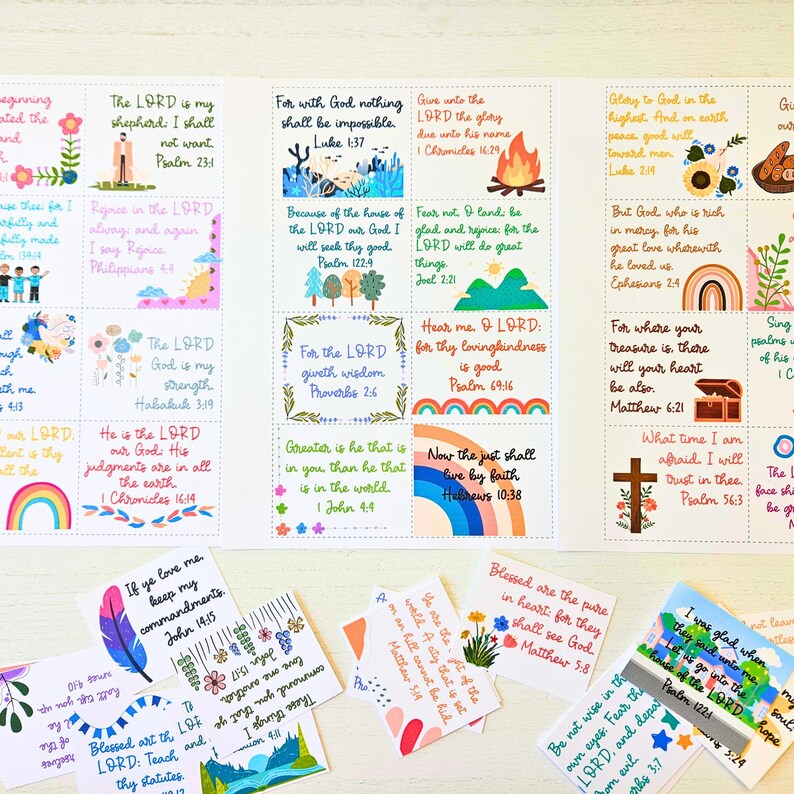 eginning
ated the
and
1:1
The LORD is my
shepherd; I shall
not want.
Psalm 23:1
aise thee; for I
arfully and
fully made
lm 139:14
Rejoice in the LORD
alway: and again
I say, Rejoice.
Philippians 4:4
all
ough
ch
eth me.
s 4:13
The LORD
God is my
strength.
Habakuk 3:19
our LORD,
ellent is thy
all the
He is the LORD
our God; His
judgments are in all
the earth.
1 Chronicles 16:14
For with God nothing
shall be impossible.
Luke 1:37
Give unto the
LORD the glory
due unto his name
1 Chronicles 16:29
Because of the house of
the LORD our God I
will seek thy good.
Psalm 122:9
Fear not, O land; be
glad and rejoice: for the
LORD will do great
things.
Joel 2:21
For the LORD
giveth wisdom
Proverbs 2:6
Hear me, O LORD;
for thy lovingkindness
is good
Psalm 69:16
Greater is he that is
in you, than he that
is in the world.
1 John 4:4
Now the just shall
live by faith
Hebrews 10:38
Glory to God in the
highest, And on earth
peace, good will
toward men.
Luke 2:14
Gi
our
But God, who is rich
in mercy, for his
great love wherewith
he loved us.
Ephesians 2:4
For where your
treasure is, there
will your heart
be also.
Matthew 6:21
Sing
psalms u
of his
1 C
What time I am
afraid, I will
trust in thee.
Psalm 56:3
The L
face shi
be gr
If ye love me,
keep my
commandments.
John 14:15
These things I
command you, that ye
love one another.
John 15:17
Blessed art th
LORD: Teach
thy statutes.
4:11
Ye are the
of the
world. A city that is set
on an hill cannot be hid
Matthew 5:14
Blessed are the pure
in heart: for they
shall see God.
Matthew 5:8
Be not wise in th
own eyes: Fear th
LORD, and depa
from evil.
erbs 3:7
I was glad when
they said unto me,
Let us go into the
house of the LORD.
Psalm 122:1
not leave
my
soul;
hope
3:24